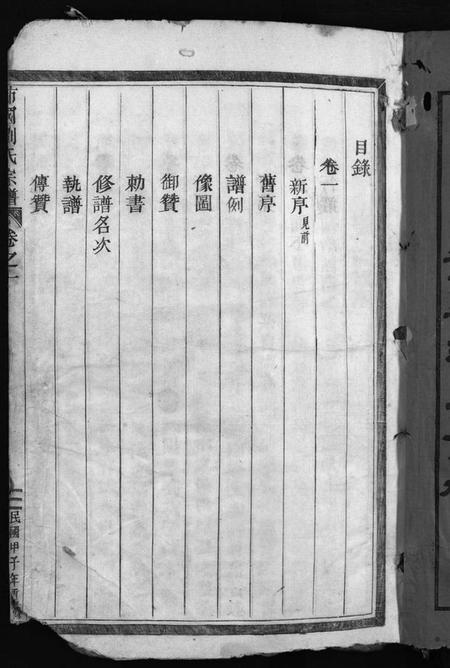 目錄
卷一
新序見前
舊序
譜例
像圖
御贊
勅書
修譜名次
執譜
傳贊
劉氏宗譜
卷之一
民國甲子年